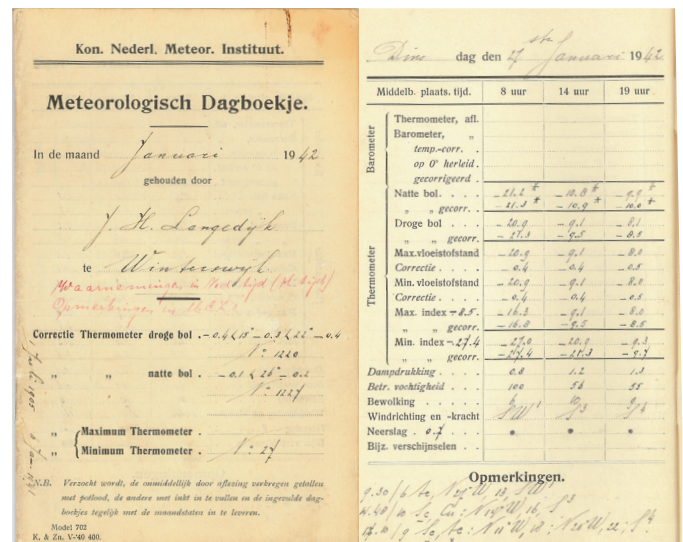 Kon. Nederl. Meteor. Instituut.
Meteorologisch Dagboekje.
In de maand Januari 1942
gehouden door
J. H. Langedijk
te Winterswijk
Correctie Thermometer droge bol . -0.4 < 15° -0.3 < 22° -0.4
N: 1220
" " natte bol . -0.1 < 26° -0.2
N: 1227
" Maximum Thermometer .
" Minimum Thermometer . N: 27
N.B. Verzocht wordt, de onmiddellijk door aflezing verkregen getallen
met potlood, de andere met inkt in te vullen en de ingevulde dag-
boekjes tegelijk met de maandstaten in te leveren.
Model 702
K. & Zn. V-'40 400.
Dins dag den 27 ste Januari 1942
Middelb. plaats. tijd. 8 uur 14 uur 19 uur
Barometer
Thermometer, afl.
Barometer, "
temp.-corr. .
op 0° herleid .
gecorrigeerd .
Thermometer
Natte bol . . . . -21.2 * -10.8 * -9.9 *
" " gecorr. . -21.3 * -10.9 * -10.0 *
Droge bol . . . . -20.9 -9.1 -8.1
" " gecorr. -21.3 -9.5 -8.5
Max. vloeistofstand -20.9 -9.1 -8.0
Correctie . . . . -0.4 -0.4 -0.5
Min. vloeistofstand -20.9 -9.1 -8.0
Correctie . . . . -0.4 -0.4 -0.5
Max. index -8.5 . -16.3 -9.1 -8.0
" " gecorr. -16.8 -9.5 -8.5
Min. index -27.4 -27.0 -20.9 -9.3
" " gecorr. -27.4 -21.3 -9.7
Dampdrukking . . . . 0.8 1.2 1.3
Betr. vochtigheid . . . . 100 56 55
Bewolking . . . . 10 9
Windrichting en -kracht SW 1
Neerslag . 0.7 . . . • • •
Bijz. verschijnselen . . .
Opmerkingen.